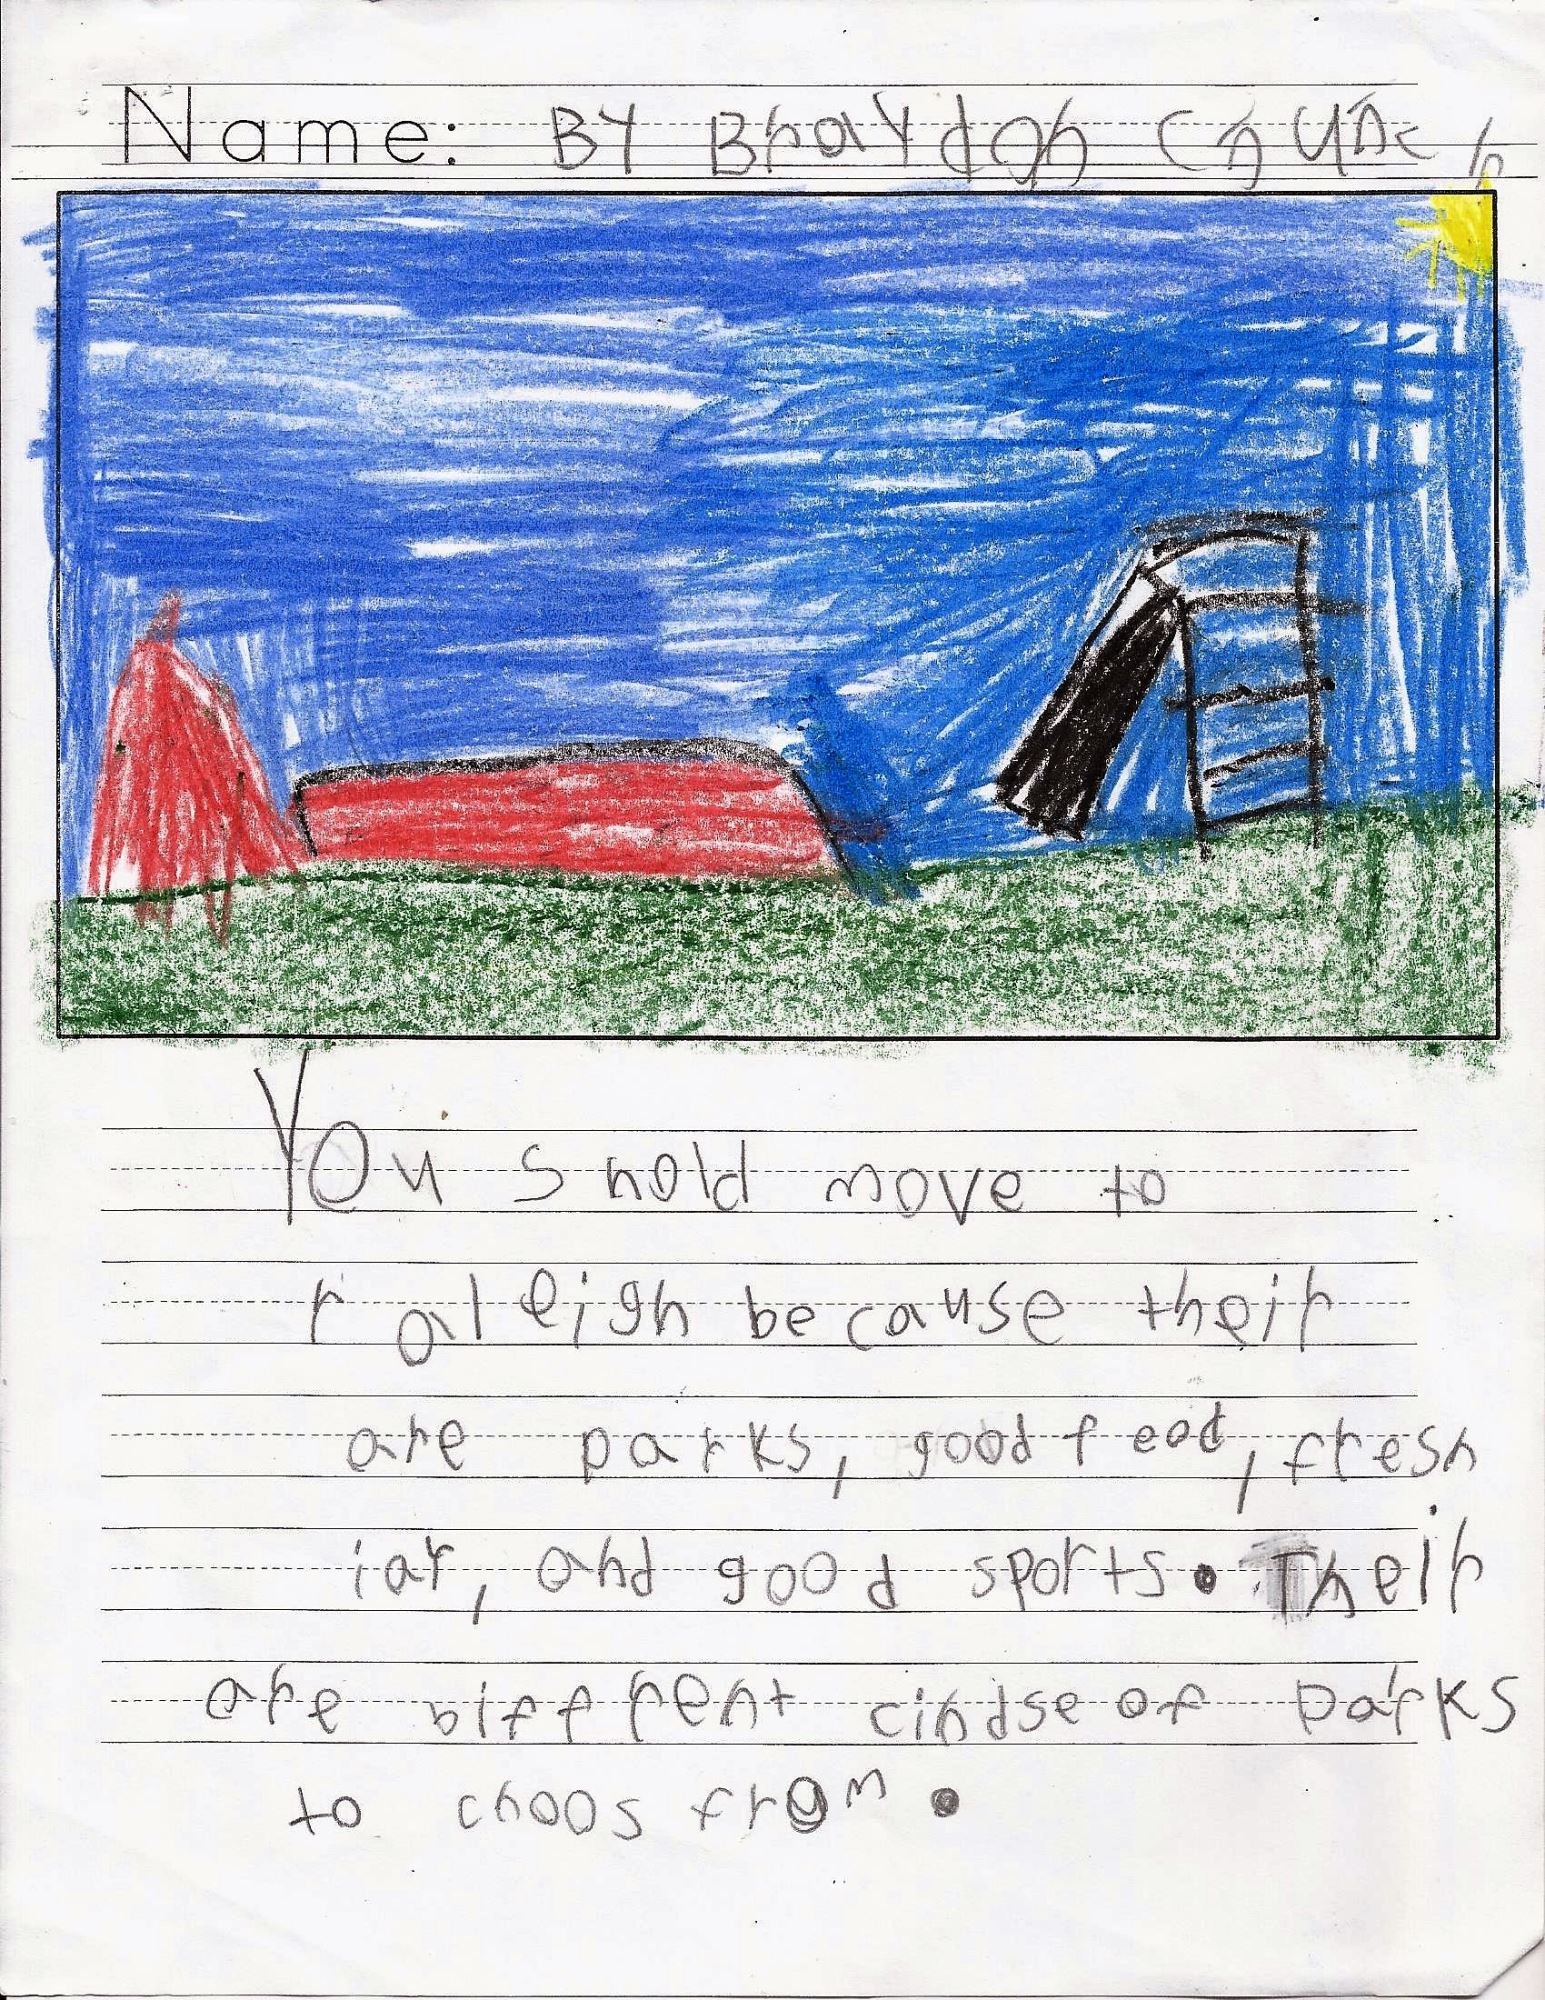 Name: BY Braydon Crunch
You shold move to
raleigh because their
are parks, good feod, fresh
iar, and good sports. Their
are biffrent cindse of parks
to choos from.